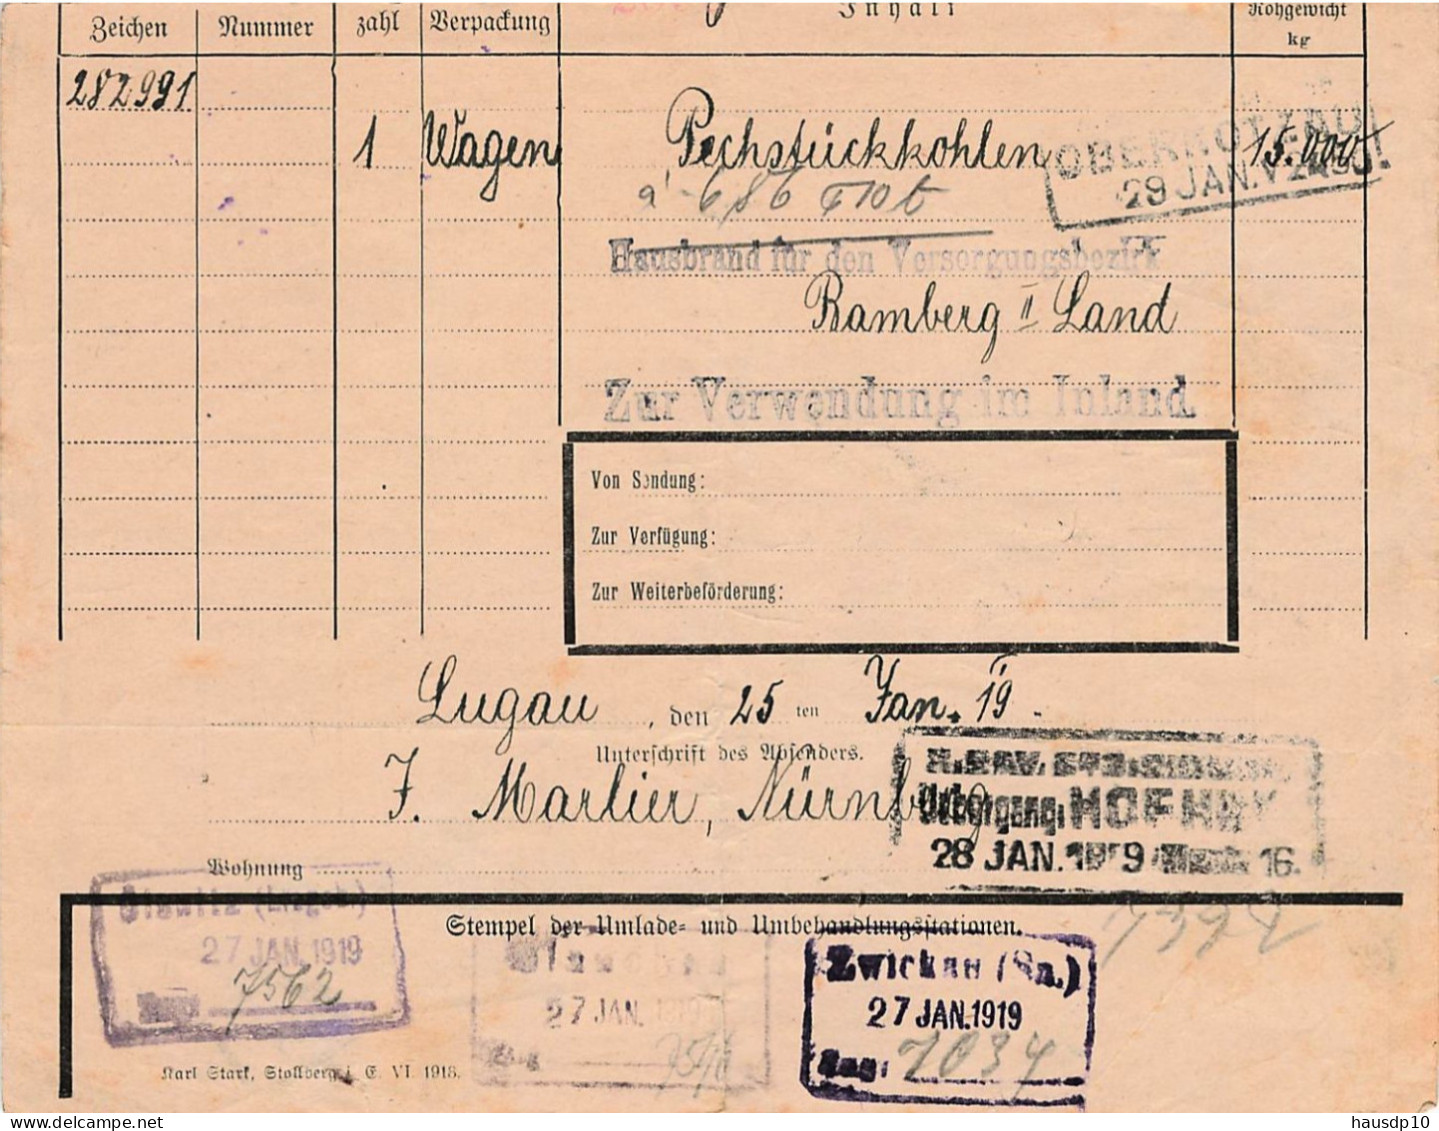 Zeichen Nummer zahl Verpackung Inhalt Rohgewicht
kg
282991
1 Wagen Pechstückkohlen 15.000
OBERKOTZAU
29 JAN.
à 686 710 t
Hausbrand für den Versorgungsbezirk
Bamberg II Land
Zur Verwendung im Inland.
Von Sendung:
Zur Verfügung:
Zur Weiterbeförderung:
Lugau, den 25 ten Jan. 19.
Unterschrift des Absenders.
J. Marlier, Nürnberg
Uebergang: HOF
28 JAN. 1919 16.
Wohnung
Stempel der Umlade- und Umbehandlungsstationen.
7394
27 JAN. 1919
7562
27 JAN. 1919
Zwickau (Sa.)
27 JAN. 1919
Zug: 7034
Karl Stark, Stollberg i. E. VI. 1918.
hausdp10